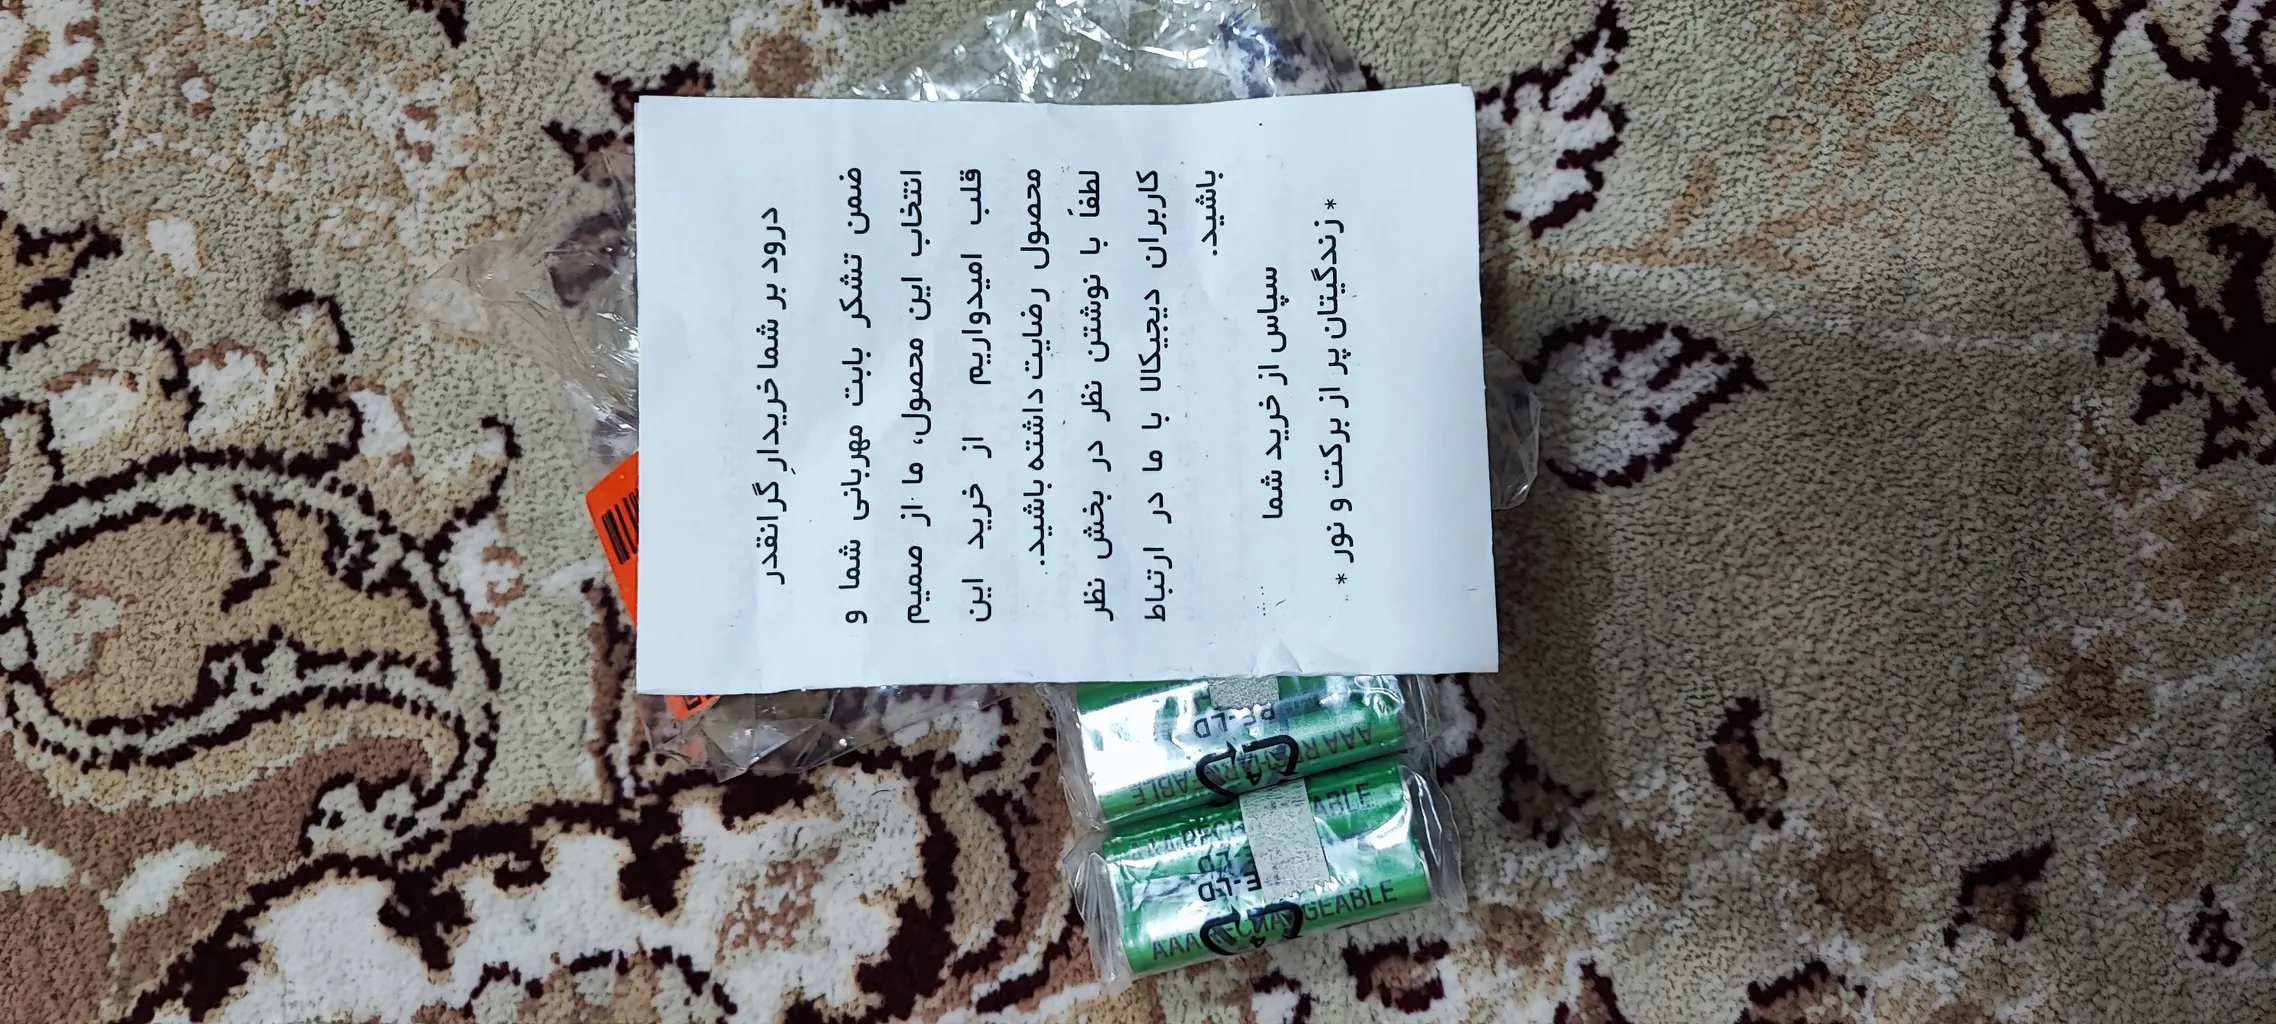 درود بر شما خریدارِ گرانقدر
ضمن تشکر بابت مهربانی شما و
انتخاب این محصول، ما از صمیم
قلب امیدواریم از خرید این
محصول رضایت داشته باشید.
لطفاً با نوشتن نظر در بخش نظر
کاربران دیجیکالا با ما در ارتباط
باشید.
سپاس از خرید شما
* زندگیتان پر از برکت و نور *
PE-LD
AAA
ABLE
4
ABLE
PE-LD
AAA RECHARGEABLE
4